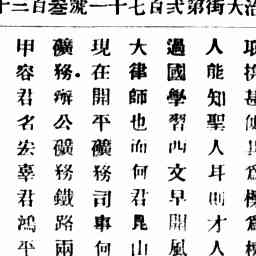 大街第弍百七十一號叁百二十
人能知聖人耳則才人
過國學習西文早開風
大律師也而何君昆山
現在開平礦務司事何
礦務。辦公礦務鐵路兩
甲容君名宏辜君鴻平